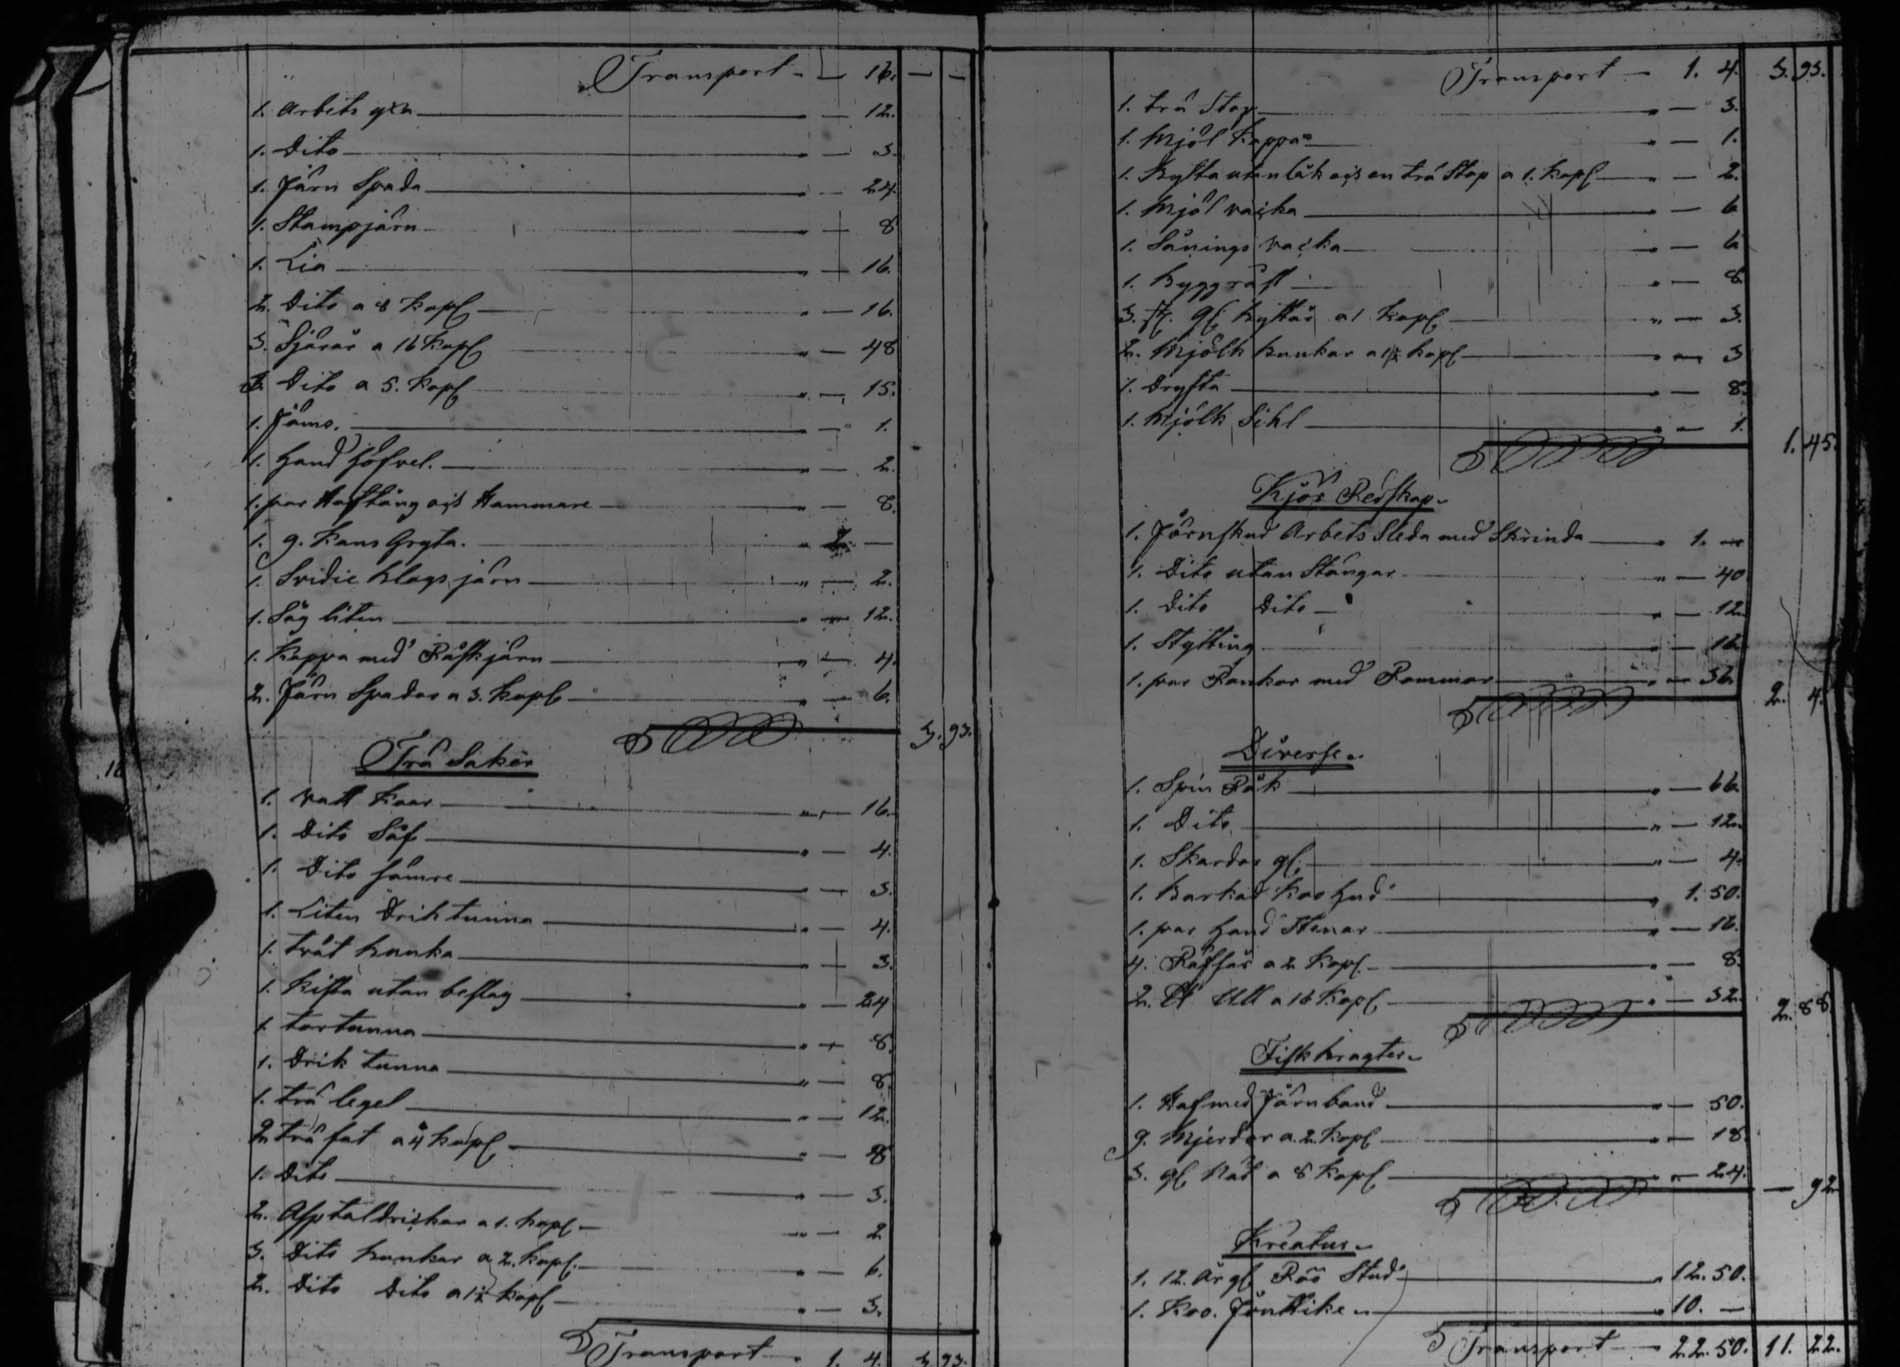 Transport - - 16. - -
1. Arbets yxa - 12.
1. Dito - 3.
1. Järn Spada - 24.
1. Stampjärn - 8
1. Lia - 16.
2. Dito a 8 Kop - 16.
3. Sjärar a 16 Kop - 48
3. Dito a 5. Kop - 15.
1. - 1.
1. Hand Höfvel. - 2.
1. par Hoftång och Hammare - 8.
1. 9. Kans Gryta. 2. -
1. järn - 2.
1. Såg liten - 12.
1. Kappa med järn - 4.
2. Järn Spador a 3. Kop - 6.
3. 93.
Trä Saker
1. vatt Kaar - 16.
1. Dito Så - 4.
1. Dito sämre - 3.
1. Liten Driktunna - 4.
1. tvät hanka - 3.
1. Kista utan beslag - 24
1. tortunna - 8.
1. Drik tunna - 8.
1. trä legel - 12.
2. trä fat a 4 Kop - 8
1. Dito - 3.
2. a 1. Kop - 2
3. Dito hankar a 2. Kop. - 6.
2. Dito Dito a 1½ Kop - 3.
Transport - 1. 4. 3. 93.
Transport - 1. 4. 3. 93.
1. trä Stop - 3.
1. Mjöl Kappa - 1.
1. Bytta utan låk och en trä Stop a 1. Kop - 2.
1. Mjöl vacka - 6
1. Sånings vacka - 6
1. - 8.
3. st. gl byttor a 1 Kop - 3.
2. Mjölk hankar a 1½ Kop - 3
1. Dryfta - 8.
1. Mjölk Sihl - 1.
1. 45.
Kjör Redskap
1. Järnskod Arbets Släda med Skrinda - 1. -
1. Dito utan Stångar - 40
1. Dito Dito - 12.
1. Stytting - 16.
1. par Rankor med Rammar - 36.
2. 4.
Diverse
1. Spin Råk - 66.
1. Dito - 12.
1. Skardor gl. - 4.
1. Barkad Koo Hud 1. 50.
1. par Hand Stenar - 16.
4. a 2 Kop. - 8.
2. Ull a 16 Kop - 32.
2. 88.
Fiskbragter
1. Haf med Järnband - 50.
9. Mjerdor a. 2. Kop - 18.
3. gl Nät a 8 Kop - 24.
- 92
Kreatur
1. 12. Är gl Röö Stud 12. 50.
1. Koo. 10. -
Transport - 22. 50. 11. 22.